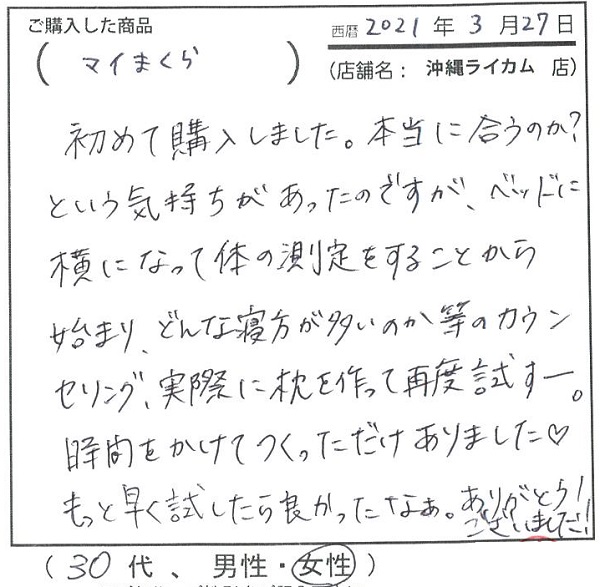 ご購入した商品
西暦 2021 年 3 月 27 日
( マイまくら )
(店舗名: 沖縄ライカム 店)
初めて購入しました。本当に合うのか?
という気持ちがあったのですが、ベッドに
横になって体の測定をすることから
始まり、どんな寝方が多いのか等のカウン
セリング、実際に枕を作って再度試すー。
時間をかけてつくっただけありました♡
もっと早く試したら良かったなぁ。ありがとう!
ございました!
( 30 代、 男性・女性 )